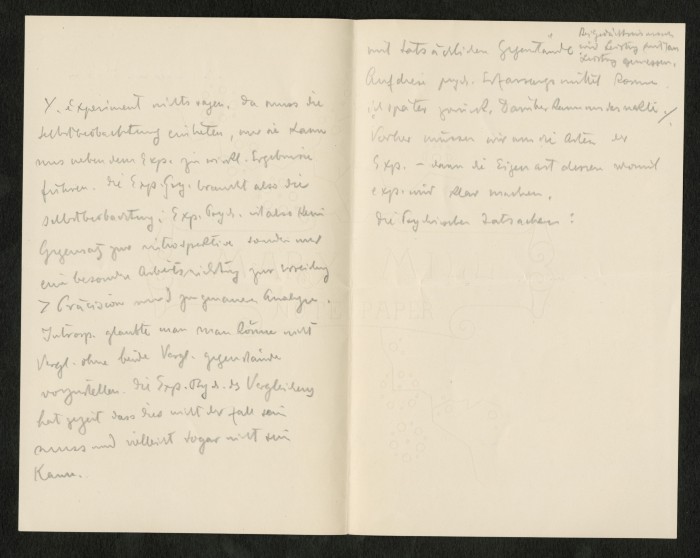 Y. Experiment nichts sagen. Da muss die
Selbstbeobachtung eintreten, nur sie kann
uns neben dem Exp. zu wirkl. Ergebnissen
führen. Die Exp. Psy. braucht also die
Selbstbeobachtung; Exp. Psych. ist also kein
Gegensatz zur introspektive sondern nur
eine besondere Arbeitsrichtung zur
Präcision und zu genauen Analysen.
Introsp. glaubte man man könne nicht
Vergl. ohne beide Vergl. gegenstände
vorzustellen. Die Exp. Psych. des Vergleichens
hat gezeigt dass dies nicht der Fall sein
muss und vielleicht sogar nicht sein
kann.
mit tatsächlichen Gegenstände
wird Leistung
Leistung gemessen.
Auf diese psych. Erfassungsmittel komme
ich später zurück. Darüber kann uns
Vorher müssen wir uns die Arten der
Exp. – dann die Eigenart dessen womit
exp. wird klar machen.
Die Psychischen Tatsachen:
PAPER